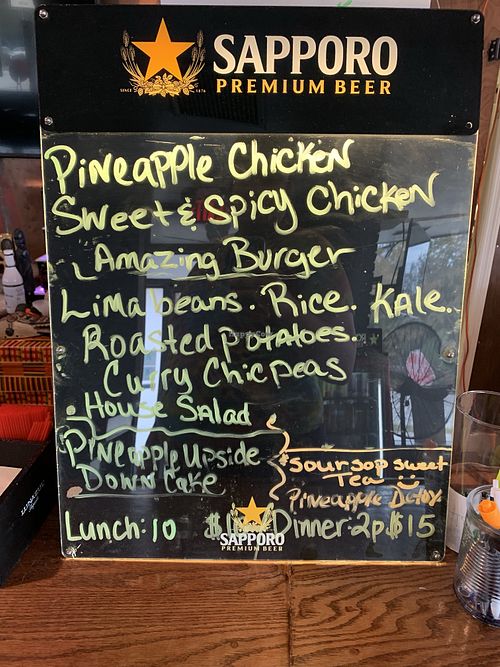 SAPPORO
PREMIUM BEER
Pineapple Chicken
Sweet & Spicy Chicken
Amazing Burger
Lima beans. Rice. Kale.
Roasted Potatoes.
Curry Chicpeas
House Salad
Pineapple Upside
Down Cake
Soursop sweet
Tea
Pineapple Detox
Lunch: 10 Dinner: 2p $15
SAPPORO
PREMIUM BEER